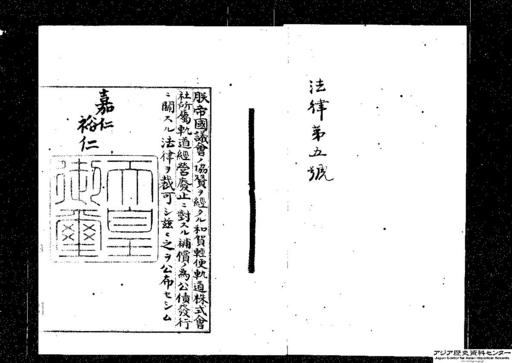 法律第五號
朕帝國議會ノ協贊ヲ經タル和賀輕便軌道株式會
社所屬軌道經營廢止ニ對スル補償ノ爲公債發行
ニ關スル法律ヲ裁可シ玆ニ之ヲ公布セシム
嘉仁
裕仁
天皇
御璽
アジア歴史資料センター
Japan Center for Asian Historical Records